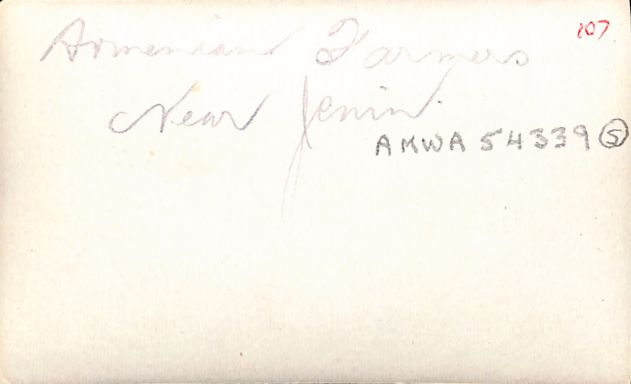 107
Armenian Farmers
Near Jenin.
AKWA 54339 S